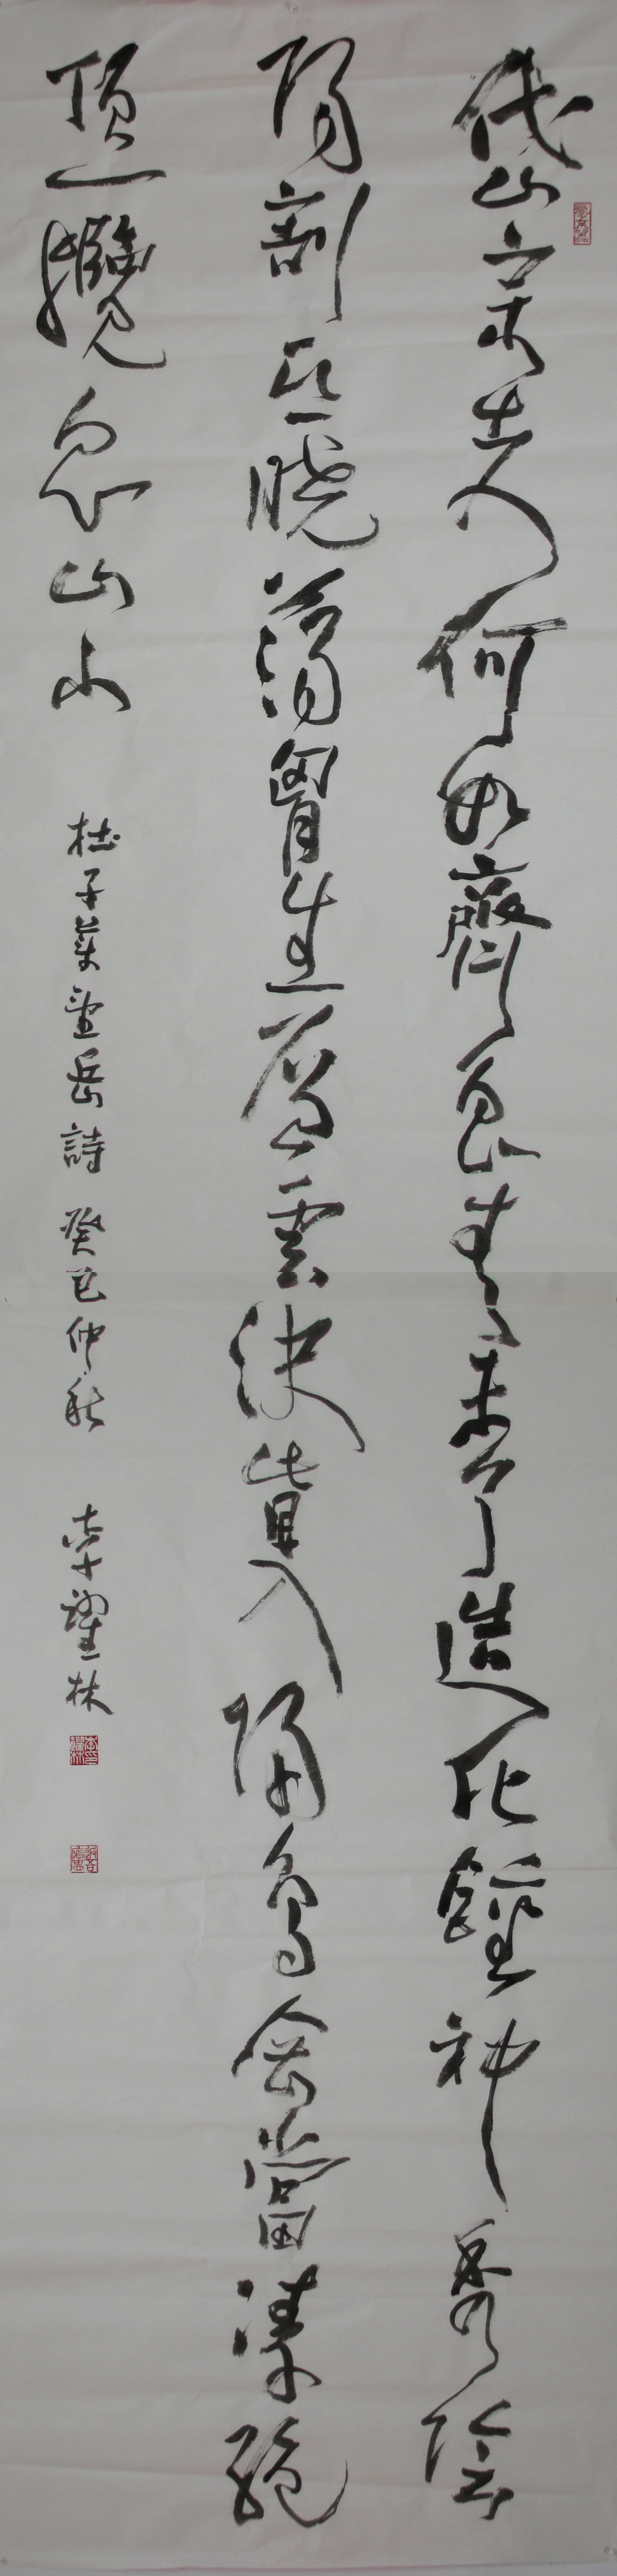 岱宗夫何如齊魯青未了造化鍾神秀陰
陽割昏曉蕩胷生層雲決眥入歸鳥會當凌絕
頂一覽眾山小
杜子美望岳詩 癸巳仲秋 李林